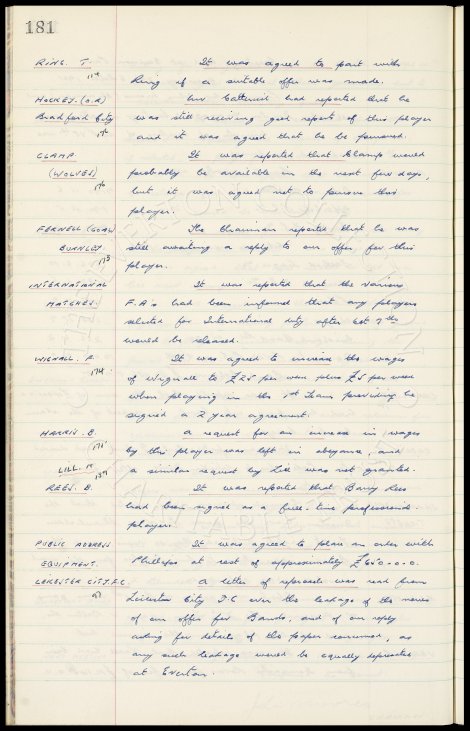 181
RING. T. It was agreed to part with
114 Ring if a suitable offer was made.
HOCKEY. (O.R) Mr Catterick had reported that he
Bradford City was still receiving good reports of this player
176 and it was agreed that he be pursued.
CLAMP It was reported that Clamp would
(WOLVES) probably be available in the next few days,
176 but it was agreed not to pursue this
player.
FERNELL (GOAL) The Chairman reported that he was
BURNLEY. still awaiting a reply to our offer for this
178 player.
INTERNATIONAL It was reported that the various
MATCHES. F.A's had been informed that any players
selected for International duty after Oct 7th
would be released.
WIGNALL. F. It was agreed to increase the wages
174 of Wignall to £25 per week plus £5 per week
when playing in the 1st Team providing he
signed a 2 year agreement.
HARRIS. B. A request for an increase in wages
171 by this player was left in abeyance, and
LILL. M a similar request by Lill was not granted.
REES. B. It was reported that Barry Rees
had been signed as a full-time professional
player.
PUBLIC ADDRESS It was agreed to place an order with
EQUIPMENT. Phillips at cost of approximately £650-0-0.
LEICESTER CITY.F.C. A letter of reproach was read from
Leicester City F.C over the leakage of the news
of our offer for Banks, and of our reply
asking for details of the paper concerned, as
any such leakage would be equally deprecated
at Everton.